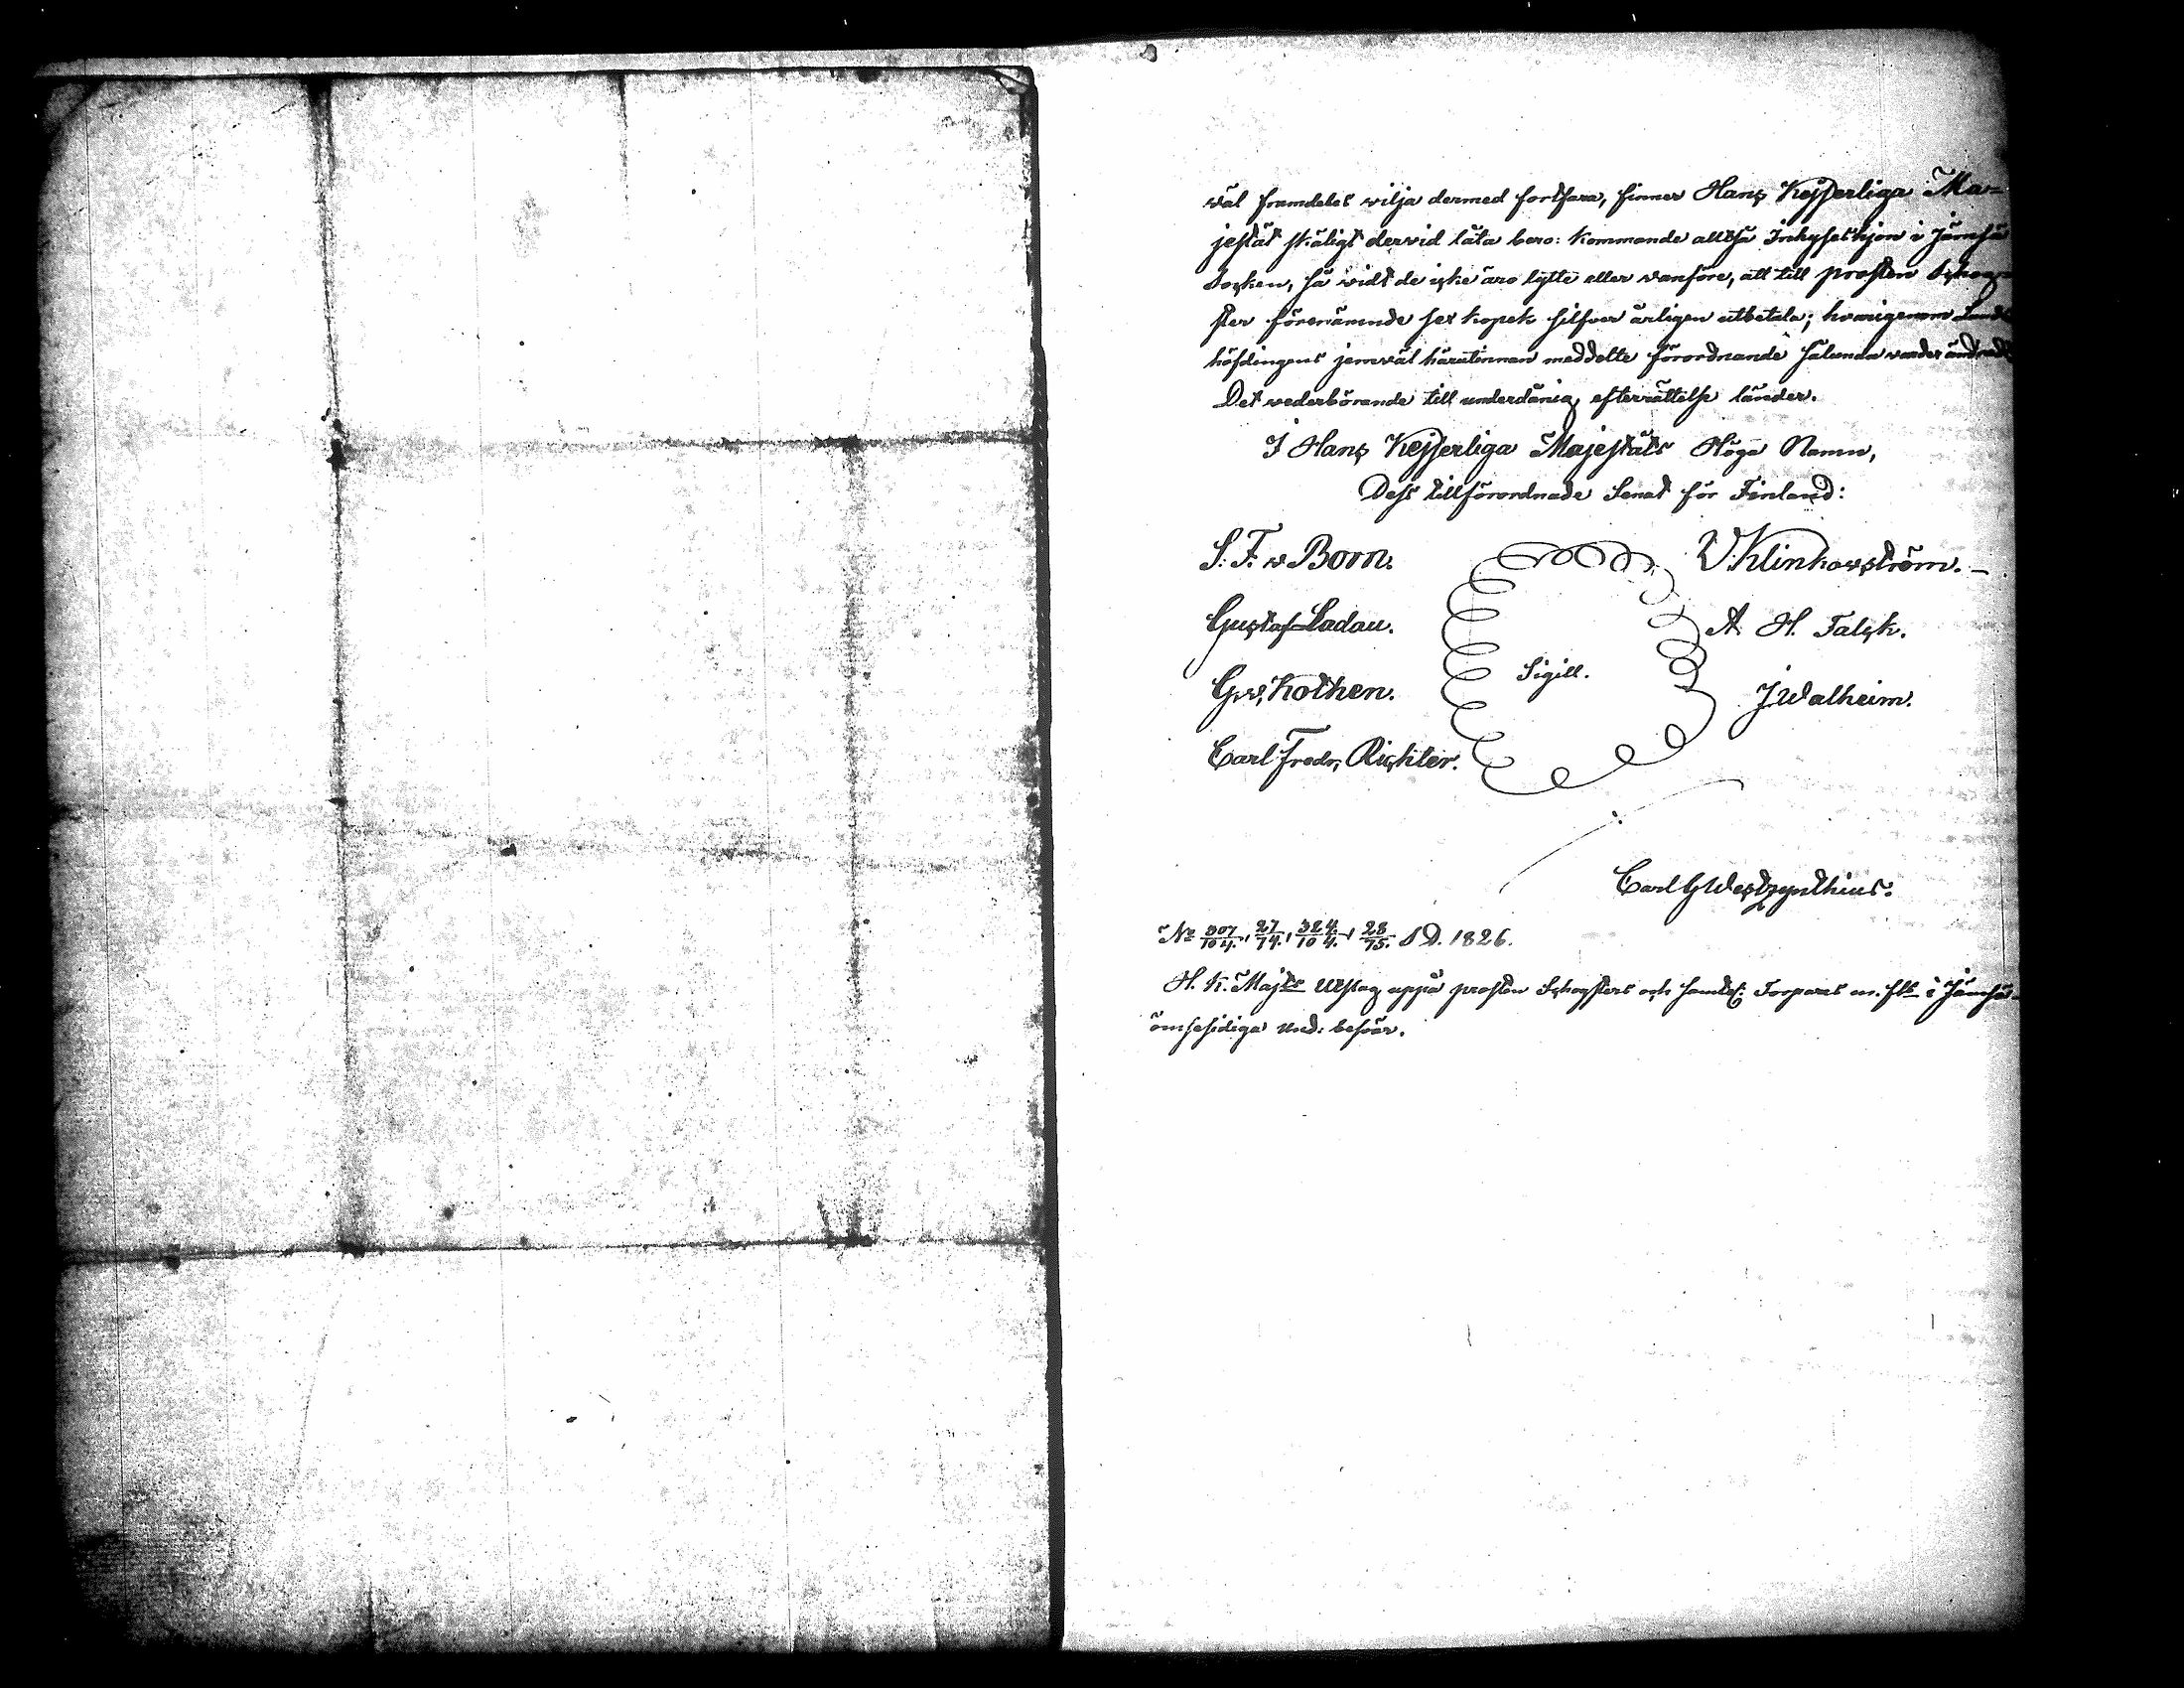 wäl framdeles wilja dermed fortfara, finner Hans Kejserliga Ma-
jestät skäligt dervid låta bero: kommande alltså Inhyseshjon i Jämsä
Socken, så vidt de icke äro lytte eller vanföre, att till prosten
ster förenämnde sex kopek silfver årligen utbetala; hvarigenom Lands
höfdingens jemväl härutinnan meddelte förordnande sålunda warder ändradt
Det wederbörande till underdånig efterrättelse länder.
I Hans Kejserliga Majestäts Höga Namn,
Dess tillförordnade Senat för Finland:
S. F. v Born. V. Klinkowström.
Gustaf Ladau. A. H. Falck.
G. v. Kothen. Sigill. J. Walheim.
Carl Fredr. Richter.
Carl G Westzynthius.
No 307/104, 27/74, 324/104, 28/75. S D. 1826.
H. K. Majts Utslag uppå prosten och samtel: Torpares m. fls i Jämsä
ömsesidiga und: besvär.